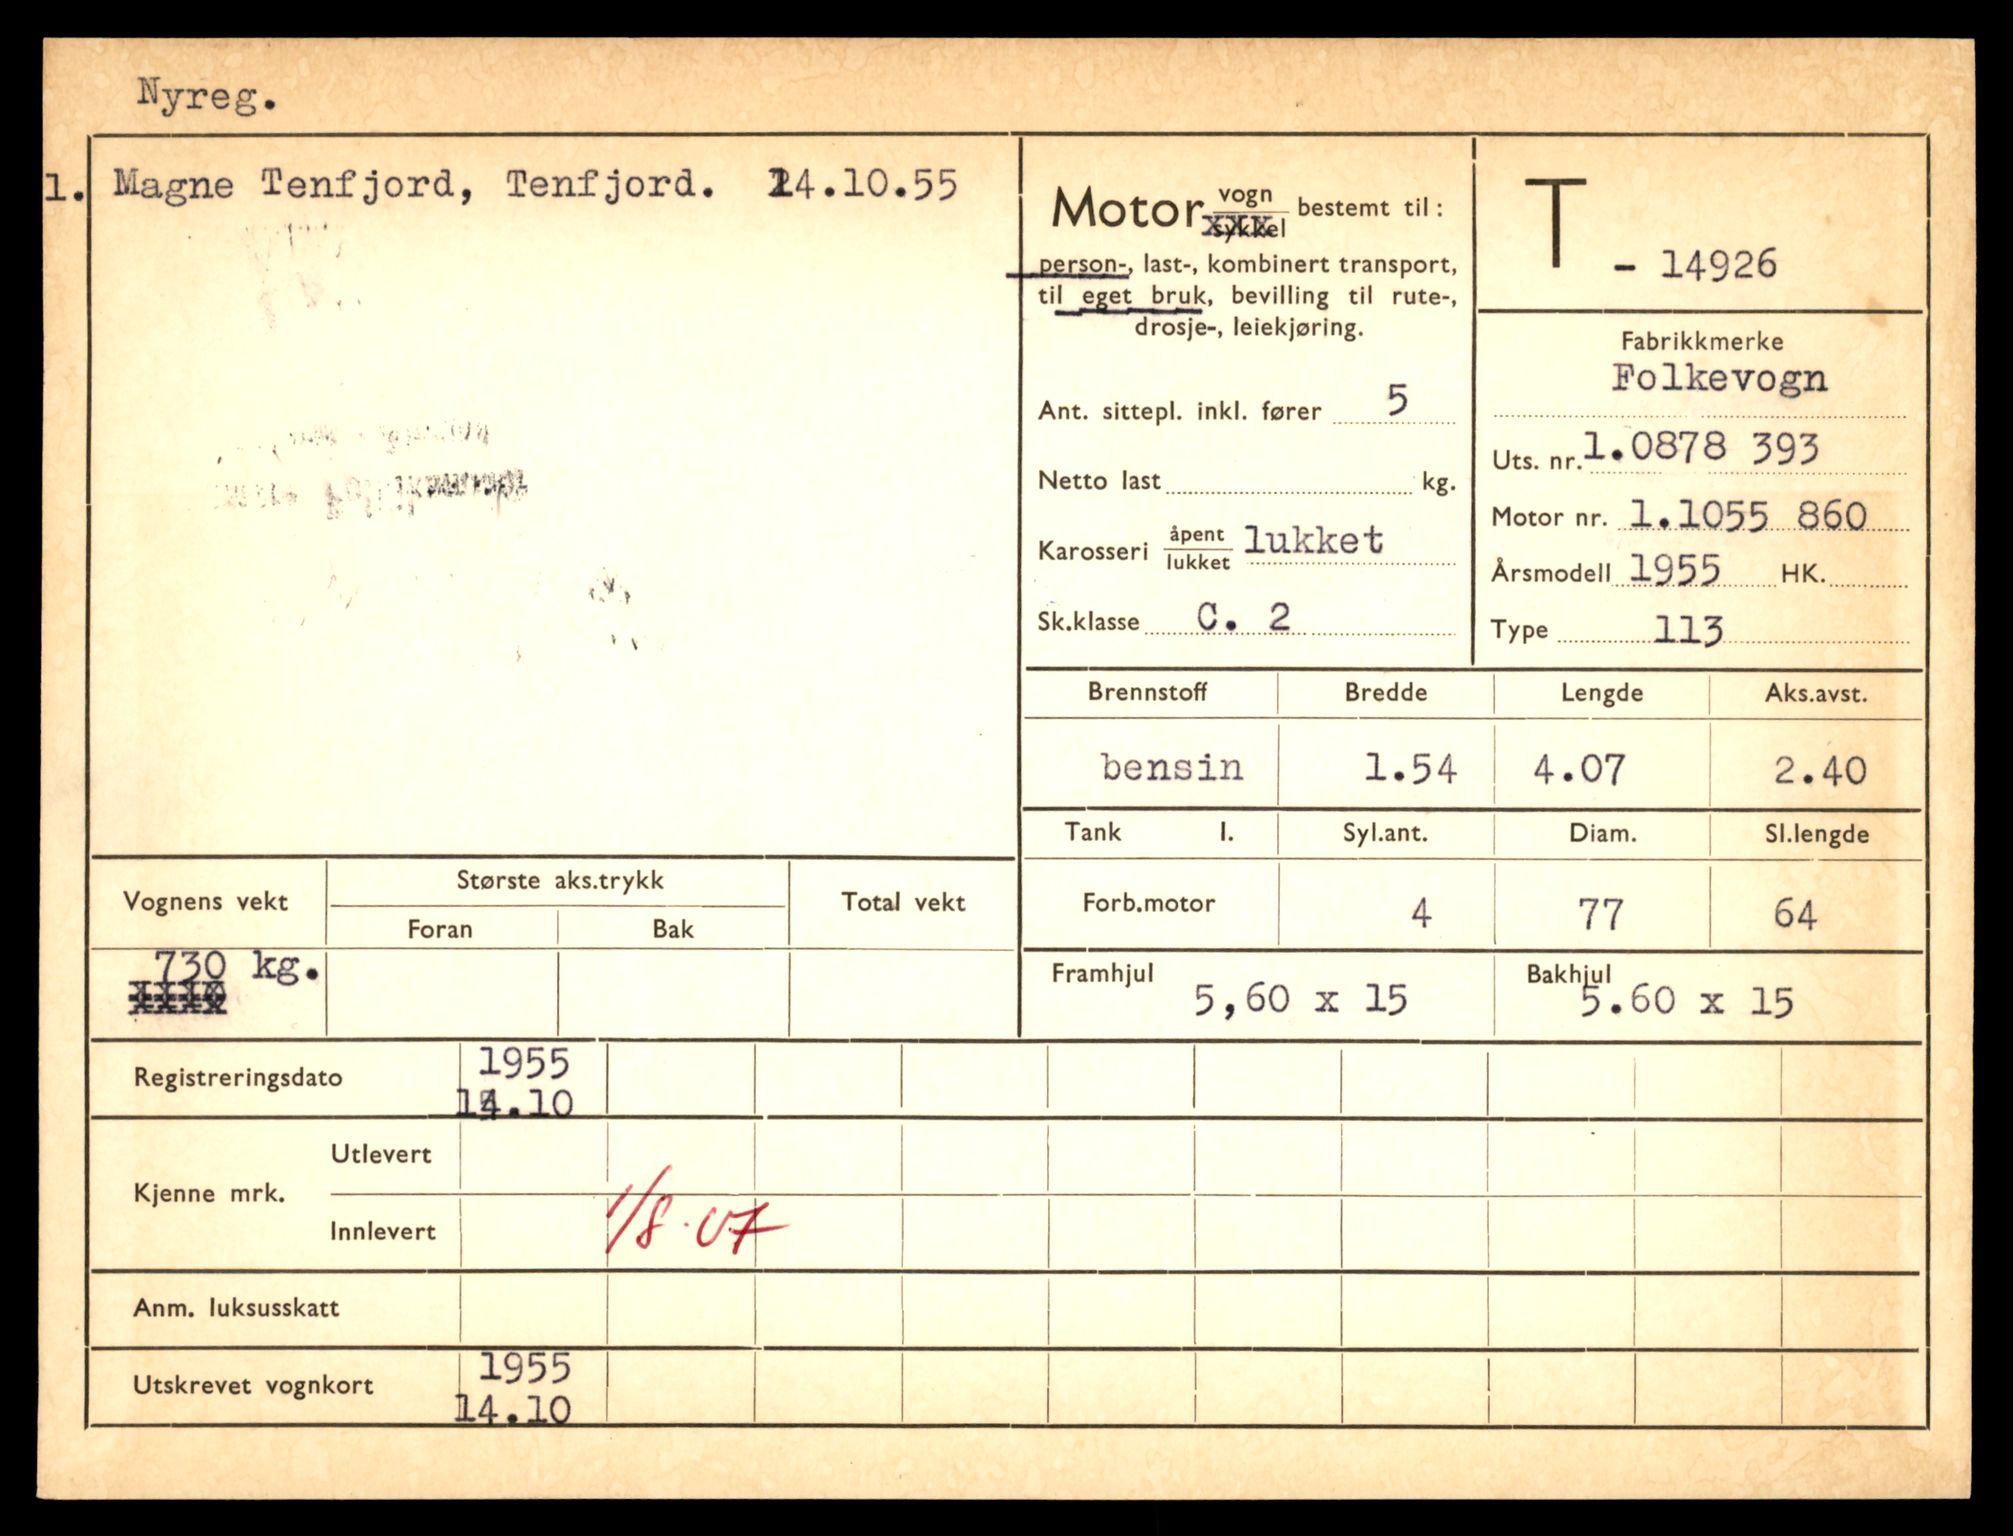 Nyreg.
1. Magne Tenfjord, Tenfjord. 14.10.55
Motor vogn bestemt til:
sykkel
person-, last-, kombinert transport,
til eget bruk, bevilling til rute-,
drosje-, leiekjøring.
Ant. sittepl. inkl. fører 5
Netto last kg.
Karosseri åpent lukket
lukket
Sk.klasse C. 2
T - 14926
Fabrikkmerke
Folkevogn
Uts. nr. 1.0878 393
Motor nr. 1.1055 860
Årsmodell 1955 HK.
Type 113
Brennstoff Bredde Lengde Aks.avst.
bensin 1.54 4.07 2.40
Tank l. Syl.ant. Diam. Sl.lengde
Forb.motor 4 77 64
Framhjul 5,60 x 15 Bakhjul 5.60 x 15
Vognens vekt Største aks.trykk Total vekt
Foran Bak
730 kg.
Registreringsdato 1955
14.10
Kjenne mrk. Utlevert
Innlevert 1/8.07
Anm. luksusskatt
Utskrevet vognkort 1955
14.10